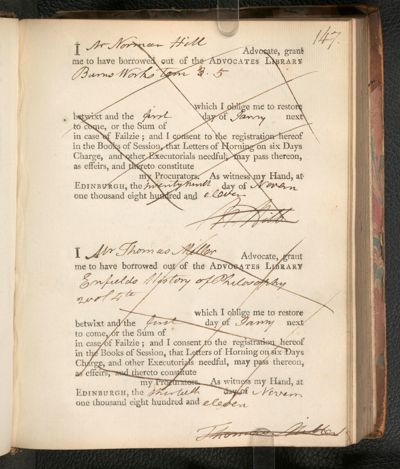 147.
I Mr Norman Hill Advocate, grant
me to have borrowed out of the ADVOCATES LIBRARY
Burns Works tom 3. 5
which I oblige me to restore
betwixt and the first day of Janry next
to come, or the Sum of
in case of Failzie; and I consent to the registration hereof
in the Books of Session, that Letters of Horning on six Days
Charge, and other Executorials needful, may pass thereon,
as effeirs, and thereto constitute
my Procurators. As witness my Hand, at
EDINBURGH, the day of Novem
one thousand eight hundred and eleven
Hill
I Mr Thomas Miller Advocate, grant
me to have borrowed out of the ADVOCATES LIBRARY
Enfields History of Philosophy
2 vol 4to
which I oblige me to restore
betwixt and the first day of Janry next
to come, or the Sum of
in case of Failzie; and I consent to the registration hereof
in the Books of Session, that Letters of Horning on six Days
Charge, and other Executorials needful, may pass thereon,
as effeirs, and thereto constitute
my Procurators. As witness my Hand, at
EDINBURGH, the thirtieth day of Novem
one thousand eight hundred and eleven
Thomas Miller